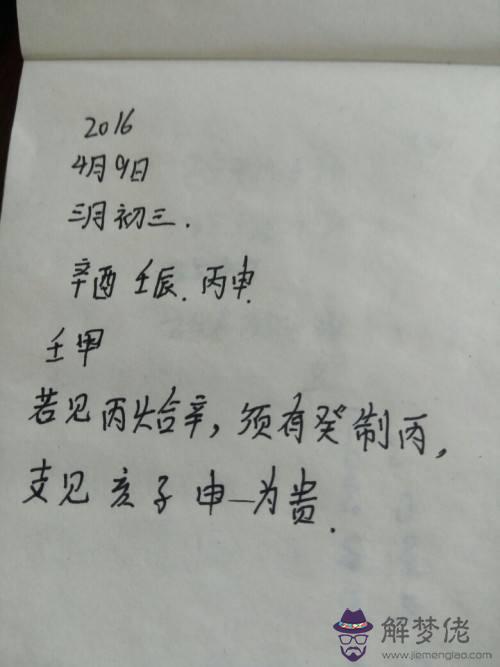 2016
4月9日
三月初三.
辛酉 壬辰. 丙申.
壬甲
若见丙火合辛，须有癸制丙，
支见亥子申—为贵.
解梦佬
www.jiemenglao.com